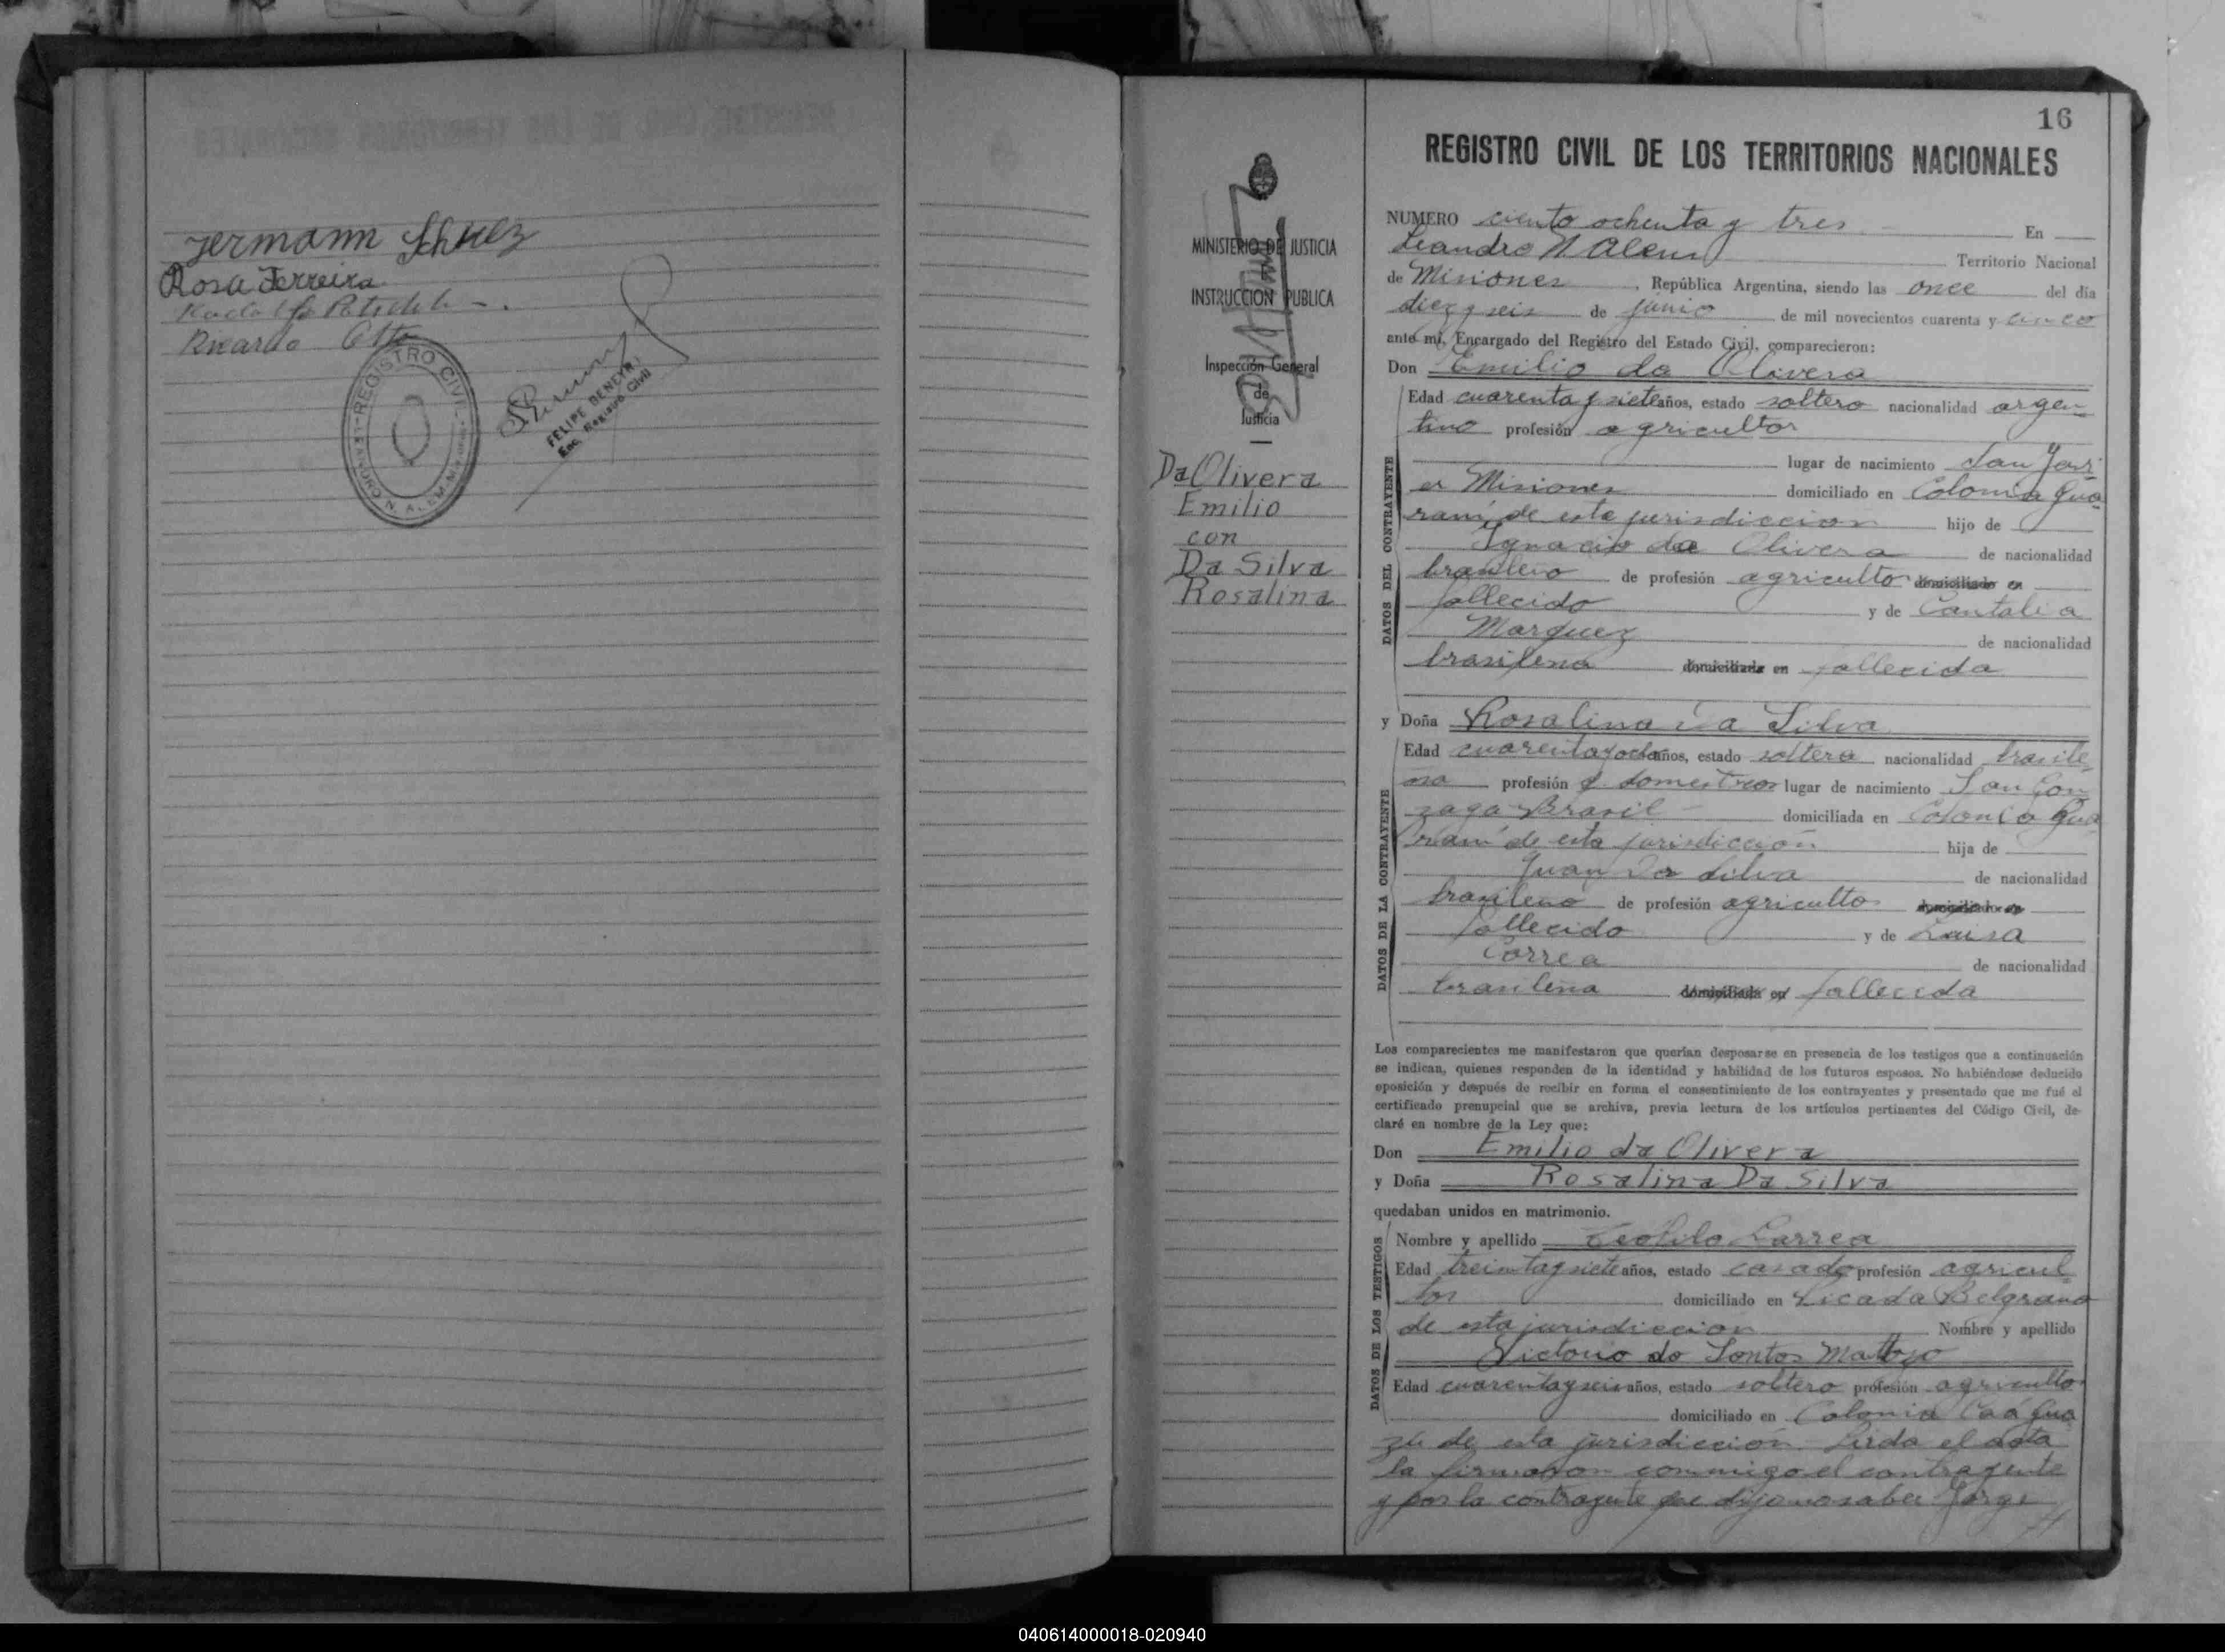 Jermann Schulz
Rosa Ferreira
Ricardo Otto
REGISTRO CIVIL
LEANDRO N. ALEM
FELIPE BENEYR
Enc. Registro Civil
MINISTERIO DE JUSTICIA
E
INSTRUCCION PUBLICA
Inspección General
de
Justicia
Da Olivera
Emilio
con
Da Silva
Rosalina
16
REGISTRO CIVIL DE LOS TERRITORIOS NACIONALES
NUMERO ciento ochenta y tres En
Leandro N Alem Territorio Nacional
de Misiones, República Argentina, siendo las once del día
diez y seis de junio de mil novecientos cuarenta y cinco
ante mí, Encargado del Registro del Estado Civil, comparecieron:
Don Emilio da Olivera
DATOS DEL CONTRAYENTE
Edad cuarenta y siete años, estado soltero nacionalidad argen-
tino profesión agricultor
lugar de nacimiento San Javi
er Misiones domiciliado en Colonia Gua
raní de esta jurisdiccion hijo de
Ignacio da Olivera de nacionalidad
brasileno de profesión agricultor domiciliado en
fallecido y de Cantalia
Marquez de nacionalidad
brasilena domiciliada en fallecida
y Doña Rosalina da Silva
DATOS DE LA CONTRAYENTE
Edad cuarenta y ocho años, estado soltera nacionalidad brasile-
na profesión q. domesticos lugar de nacimiento San Gon
zaga Brasil domiciliada en Colonia Gua
raní de esta jurisdicción hija de
Juan Da Silva de nacionalidad
brasileno de profesión agricultor domiciliado en
fallecido y de Luisa
Correa de nacionalidad
brasileña domiciliada en fallecida
Los comparecientes me manifestaron que querían desposarse en presencia de los testigos que a continuación
se indican, quienes responden de la identidad y habilidad de los futuros esposos. No habiéndose deducido
oposición y después de recibir en forma el consentimiento de los contrayentes y presentado que me fué el
certificado prenupcial que se archiva, previa lectura de los artículos pertinentes del Código Civil, de-
claré en nombre de la Ley que:
Don Emilio da Olivera
y Doña Rosalina Da Silva
quedaban unidos en matrimonio.
DATOS DE LOS TESTIGOS
Nombre y apellido Teofilo Larrea
Edad treinta y siete años, estado casado profesión agricul-
tor domiciliado en Picada Belgrano
de esta jurisdiccion Nombre y apellido
Victorio do Santos Mattozo
Edad cuarenta y seis años, estado soltero profesión agricultor
domiciliado en Colonia Caá Gua
zú de esta jurisdicción. Leida el acta
la firmaron conmigo el contrayente
y por la contrayente que dijo no saber Jorge
040614000018-020940